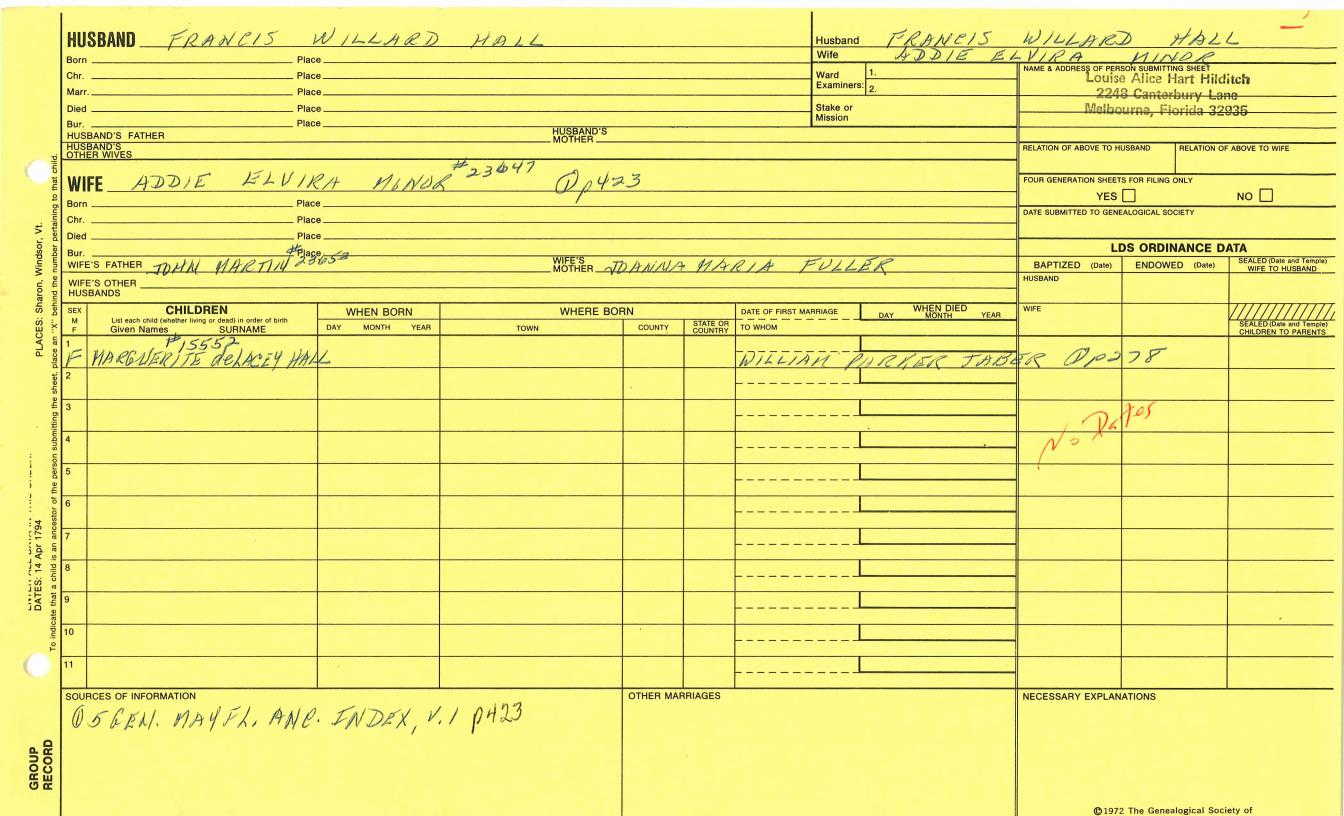 HUSBAND FRANCIS WILLARD HALL
Born Place
Chr. Place
Marr. Place
Died Place
Bur. Place
HUSBAND'S FATHER HUSBAND'S MOTHER
HUSBAND'S OTHER WIVES
Husband FRANCIS WILLARD HALL
Wife ADDIE ELVIRA MINOR
Ward Examiners: 1.
2.
Stake or Mission
NAME & ADDRESS OF PERSON SUBMITTING SHEET
Louise Alice Hart Hilditch
2248 Canterbury Lane
Melbourne, Florida 32935
RELATION OF ABOVE TO HUSBAND RELATION OF ABOVE TO WIFE
FOUR GENERATION SHEETS FOR FILING ONLY
YES NO
DATE SUBMITTED TO GENEALOGICAL SOCIETY
WIFE ADDIE ELVIRA MINOR #23647 ① p423
Born Place
Chr. Place
Died Place
Bur. Place
WIFE'S FATHER JOHN MARTIN WIFE'S MOTHER JOANNA MARIA FULLER
WIFE'S OTHER HUSBANDS
LDS ORDINANCE DATA
BAPTIZED (Date) ENDOWED (Date) SEALED (Date and Temple) WIFE TO HUSBAND
HUSBAND
WIFE
SEALED (Date and Temple) CHILDREN TO PARENTS
SEX M F
CHILDREN
List each child (whether living or dead) in order of birth
Given Names SURNAME
WHEN BORN
DAY MONTH YEAR
WHERE BORN
TOWN COUNTY STATE OR COUNTRY
DATE OF FIRST MARRIAGE
TO WHOM
WHEN DIED
DAY MONTH YEAR
#15552
1 F MARGUERITE deLACEY HALL WILLIAM PARKER JABER ① p278
2
3
No Dates
4
5
6
7
8
9
10
11
SOURCES OF INFORMATION
① 5 GEN. MAYFL. ANC. INDEX, V.1 p423
OTHER MARRIAGES
NECESSARY EXPLANATIONS
©1972 The Genealogical Society of
PLACES: Sharon, Windsor, Vt.
DATES: 14 Apr 1794
To indicate that a child is an ancestor of the person submitting the sheet, place an "X" behind the number pertaining to that child.
GROUP RECORD